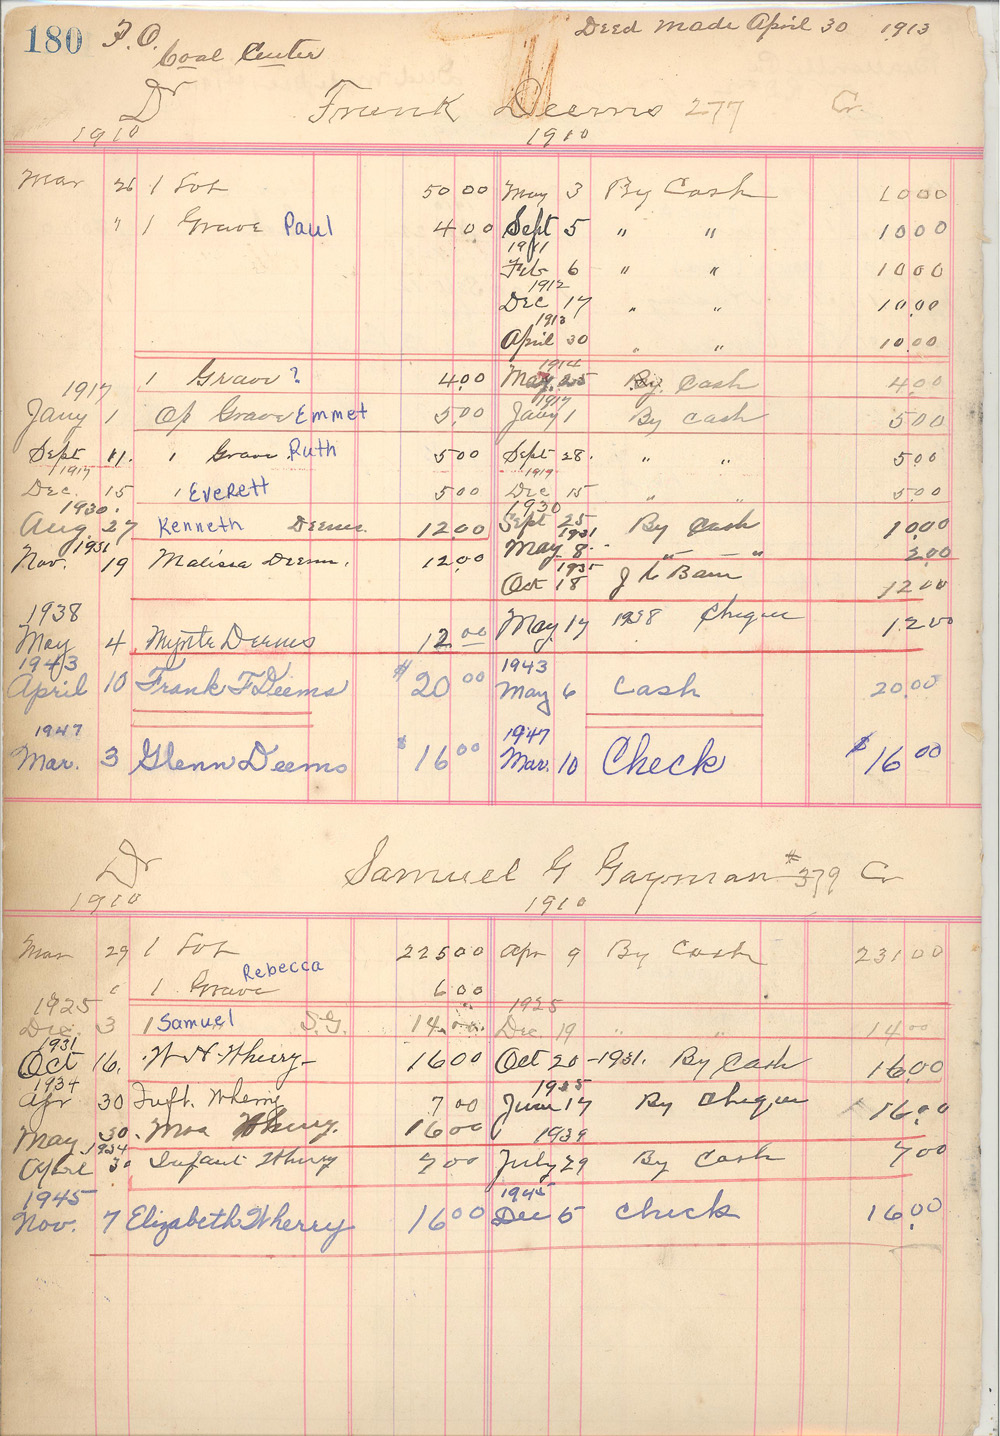 180 P.O. Deed Made April 30 1913
Coal Center
Dr Frank Deems 277 Cr.
1910 1910
Mar 26 1 Lot 50 00 May 3 By Cash 10 00
" 1 Grave Paul 4 00 Sept 5 " " 10 00
1911
Feb 6 " " 10 00
1912
Dec 17 " " 10 00
1913
April 30 " " 10 00
1914
1 Grave ? 4 00 May 25 By Cash 4 00
1917 1917
Jany 1 Op Grave Emmet 5 00 Jany 1 By Cash 5 00
Sept 11. 1 Grave Ruth 5 00 Sept 28. " " 5 00
1917 1919
Dec. 15 1 Everett 5 00 Dec 15 " " 5 00
1930. 1930
Aug. 27 Kenneth Deems. 12 00 Sept 25 By Cash 10 00
1931 1931
Nov. 19 Malissa Deems. 12 00 May 8 " — " 2 00
1935
Oct 18 12 00
1938
May 4 Myrtle Deems 12 00 May 17 1938 Cheque 12 00
1943 1943
April 10 Frank F Deems $ 20 00 May 6 Cash 20 00
1947 1947
Mar. 3 Glenn Deems $ 16 00 Mar. 10 Check $ 16 00
Dr Samuel G Gayman #379 Cr
1910 1910
Mar 29 1 Lot 225 00 Apr 9 By Cash 231 00
" 1 Grave Rebecca 6 00
1925 1925
Dec. 3 1 Samuel S.G. 14 00 Dec 19 " " 14 00
1931
Oct 16. W H Wherry 16 00 Oct 20 - 1931. By Cash 16 00
1934 1935
Apr 30 Inft. Wherry 7 00 June 17 By Cheque 16 00
May 30. Wherry. 16 00 1939
1934
April 30 Infant Wherry 7 00 July 29 By Cash 7 00
1945 1945
Nov. 7 Elizabeth Wherry 16 00 Dec 5 Check 16 00